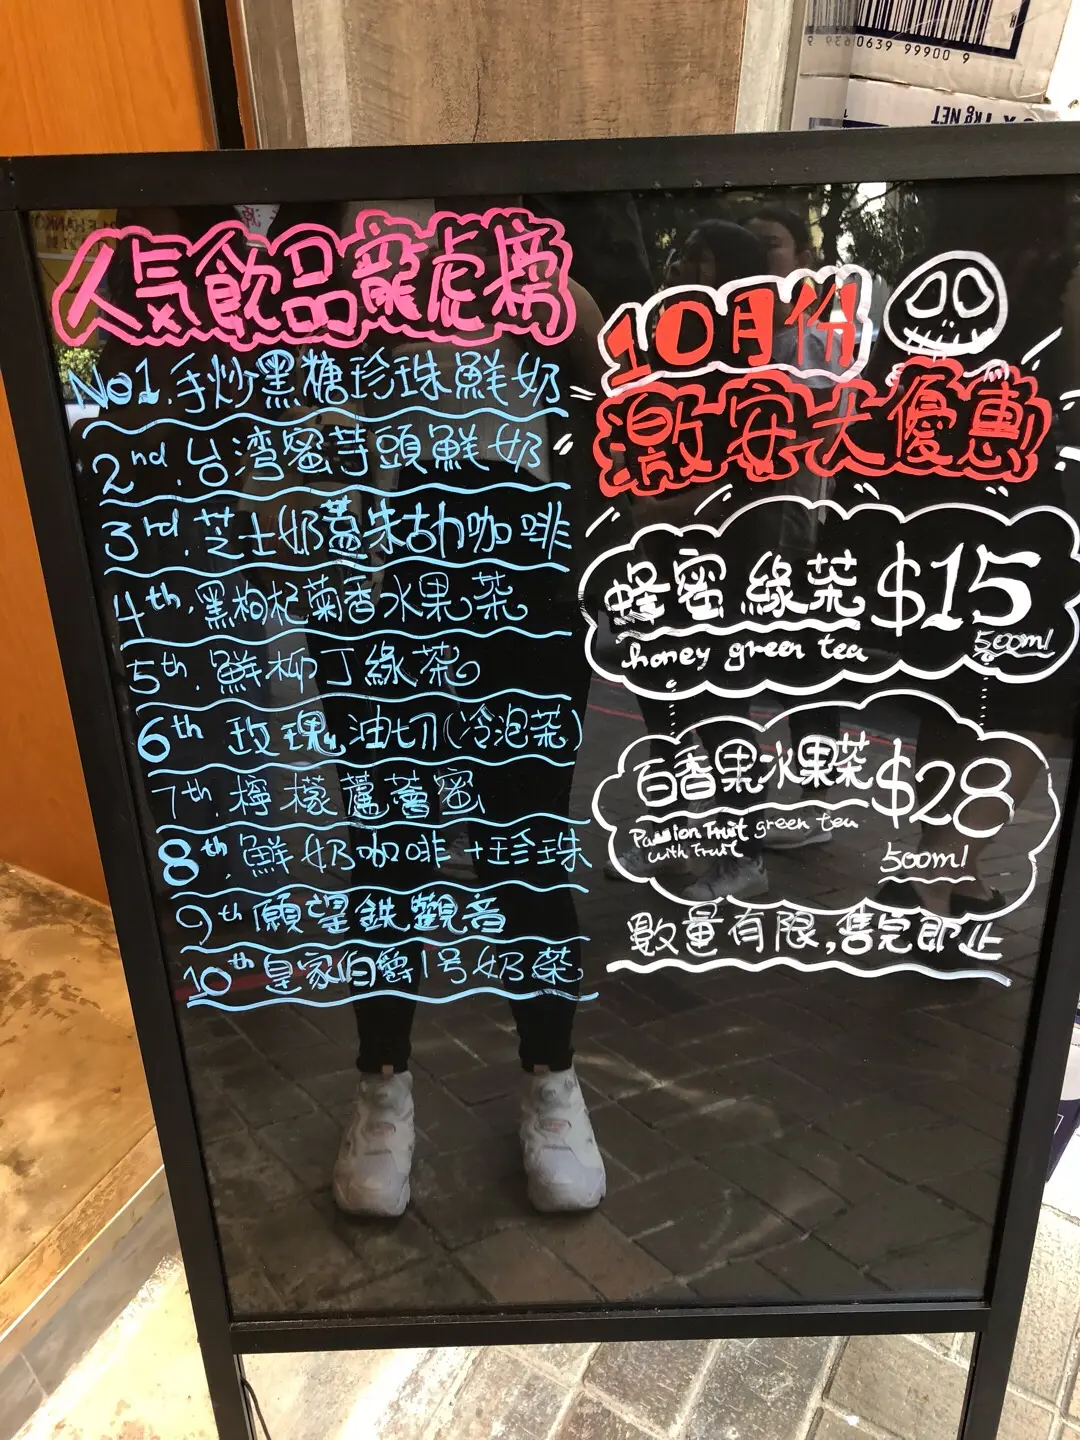 9 939 0639 99900 9
1kg NET
人気飲品龍虎榜
No1.手炒黑糖珍珠鮮奶
2nd.台湾蜜芋頭鮮奶
3rd.芝士奶蓋朱古力咖啡
4th.黑枸杞菊香水果茶
5th.鮮柳丁綠茶
6th 玫瑰油切(冷泡茶)
7th.檸檬蘆薈蜜
8th.鮮奶咖啡+珍珠
9th 願望鉄觀音
10th 皇家伯爵1号奶茶
10月份
激安大優惠
蜂蜜綠茶 $15
honey green tea 500ml
百香果水果茶 $28
Passion Fruit green tea
with Fruit
500ml
數量有限,售完即止